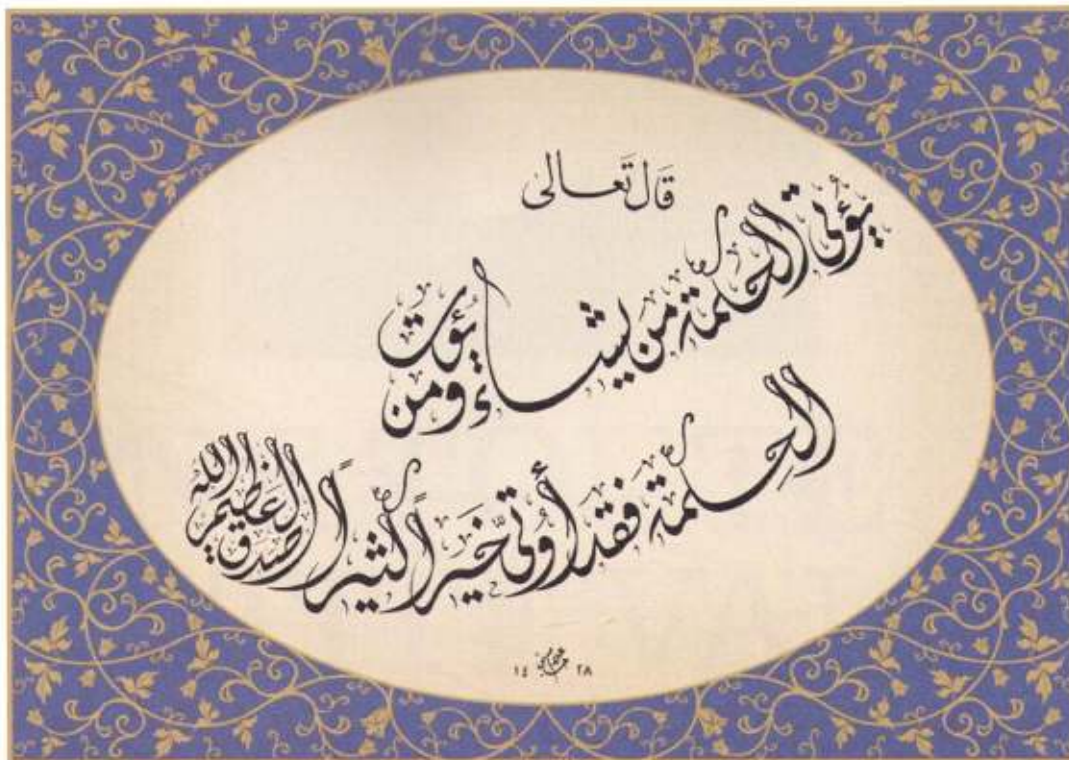 قَال تَعالى
يُؤتي الحكمة من يشاء ومن يُؤت
الحِكمة فقد أُوتيَ خَيراً كثيراً صدق الله العظيم
١٤ ٢٨